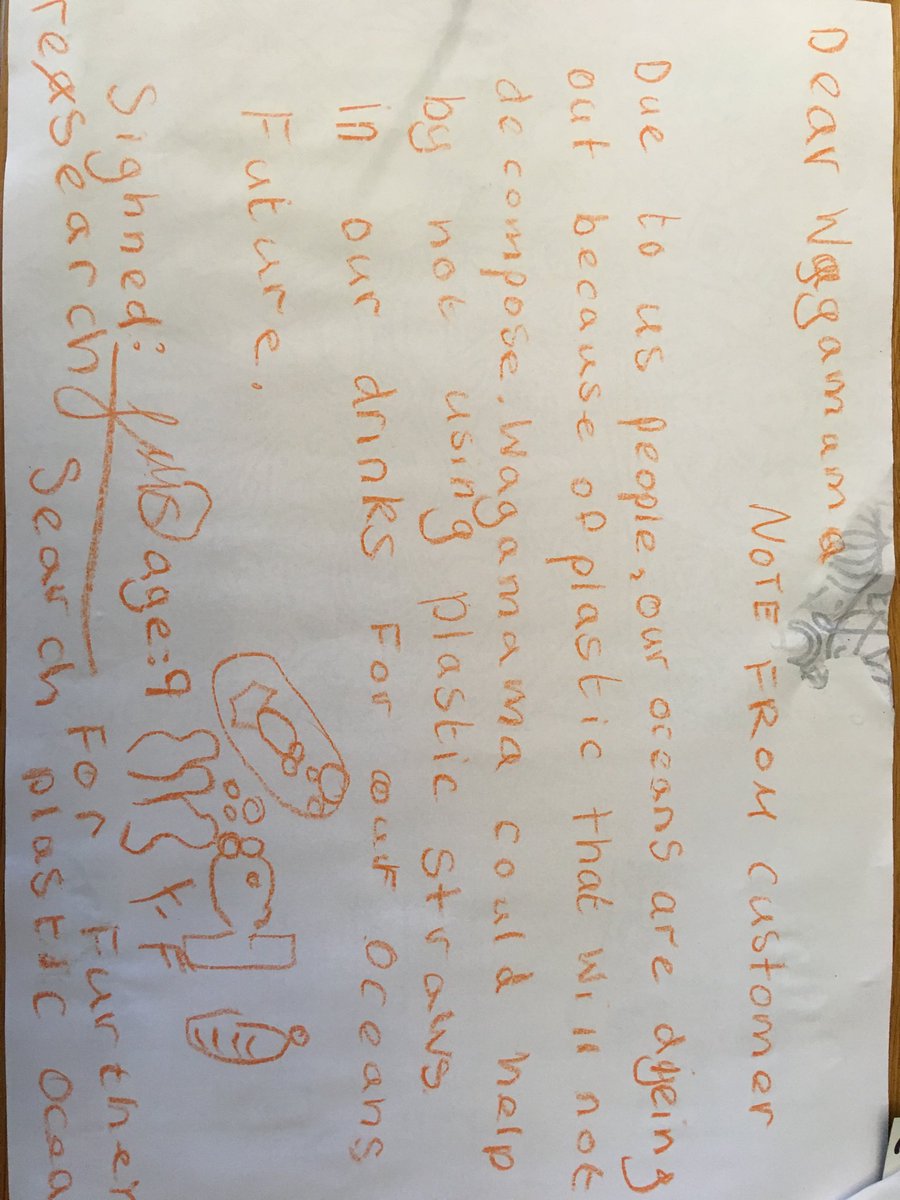 Dear Wagamama
NOTE FROM CUSTOMER
Due to us people, our oceans are dyeing
out because of plastic that will not
decompose. Wagamama could help
by not using plastic straws
in our drinks For our Oceans
Future.
Sighned: age: 9
For Further
reasearch Search plastic Ocea